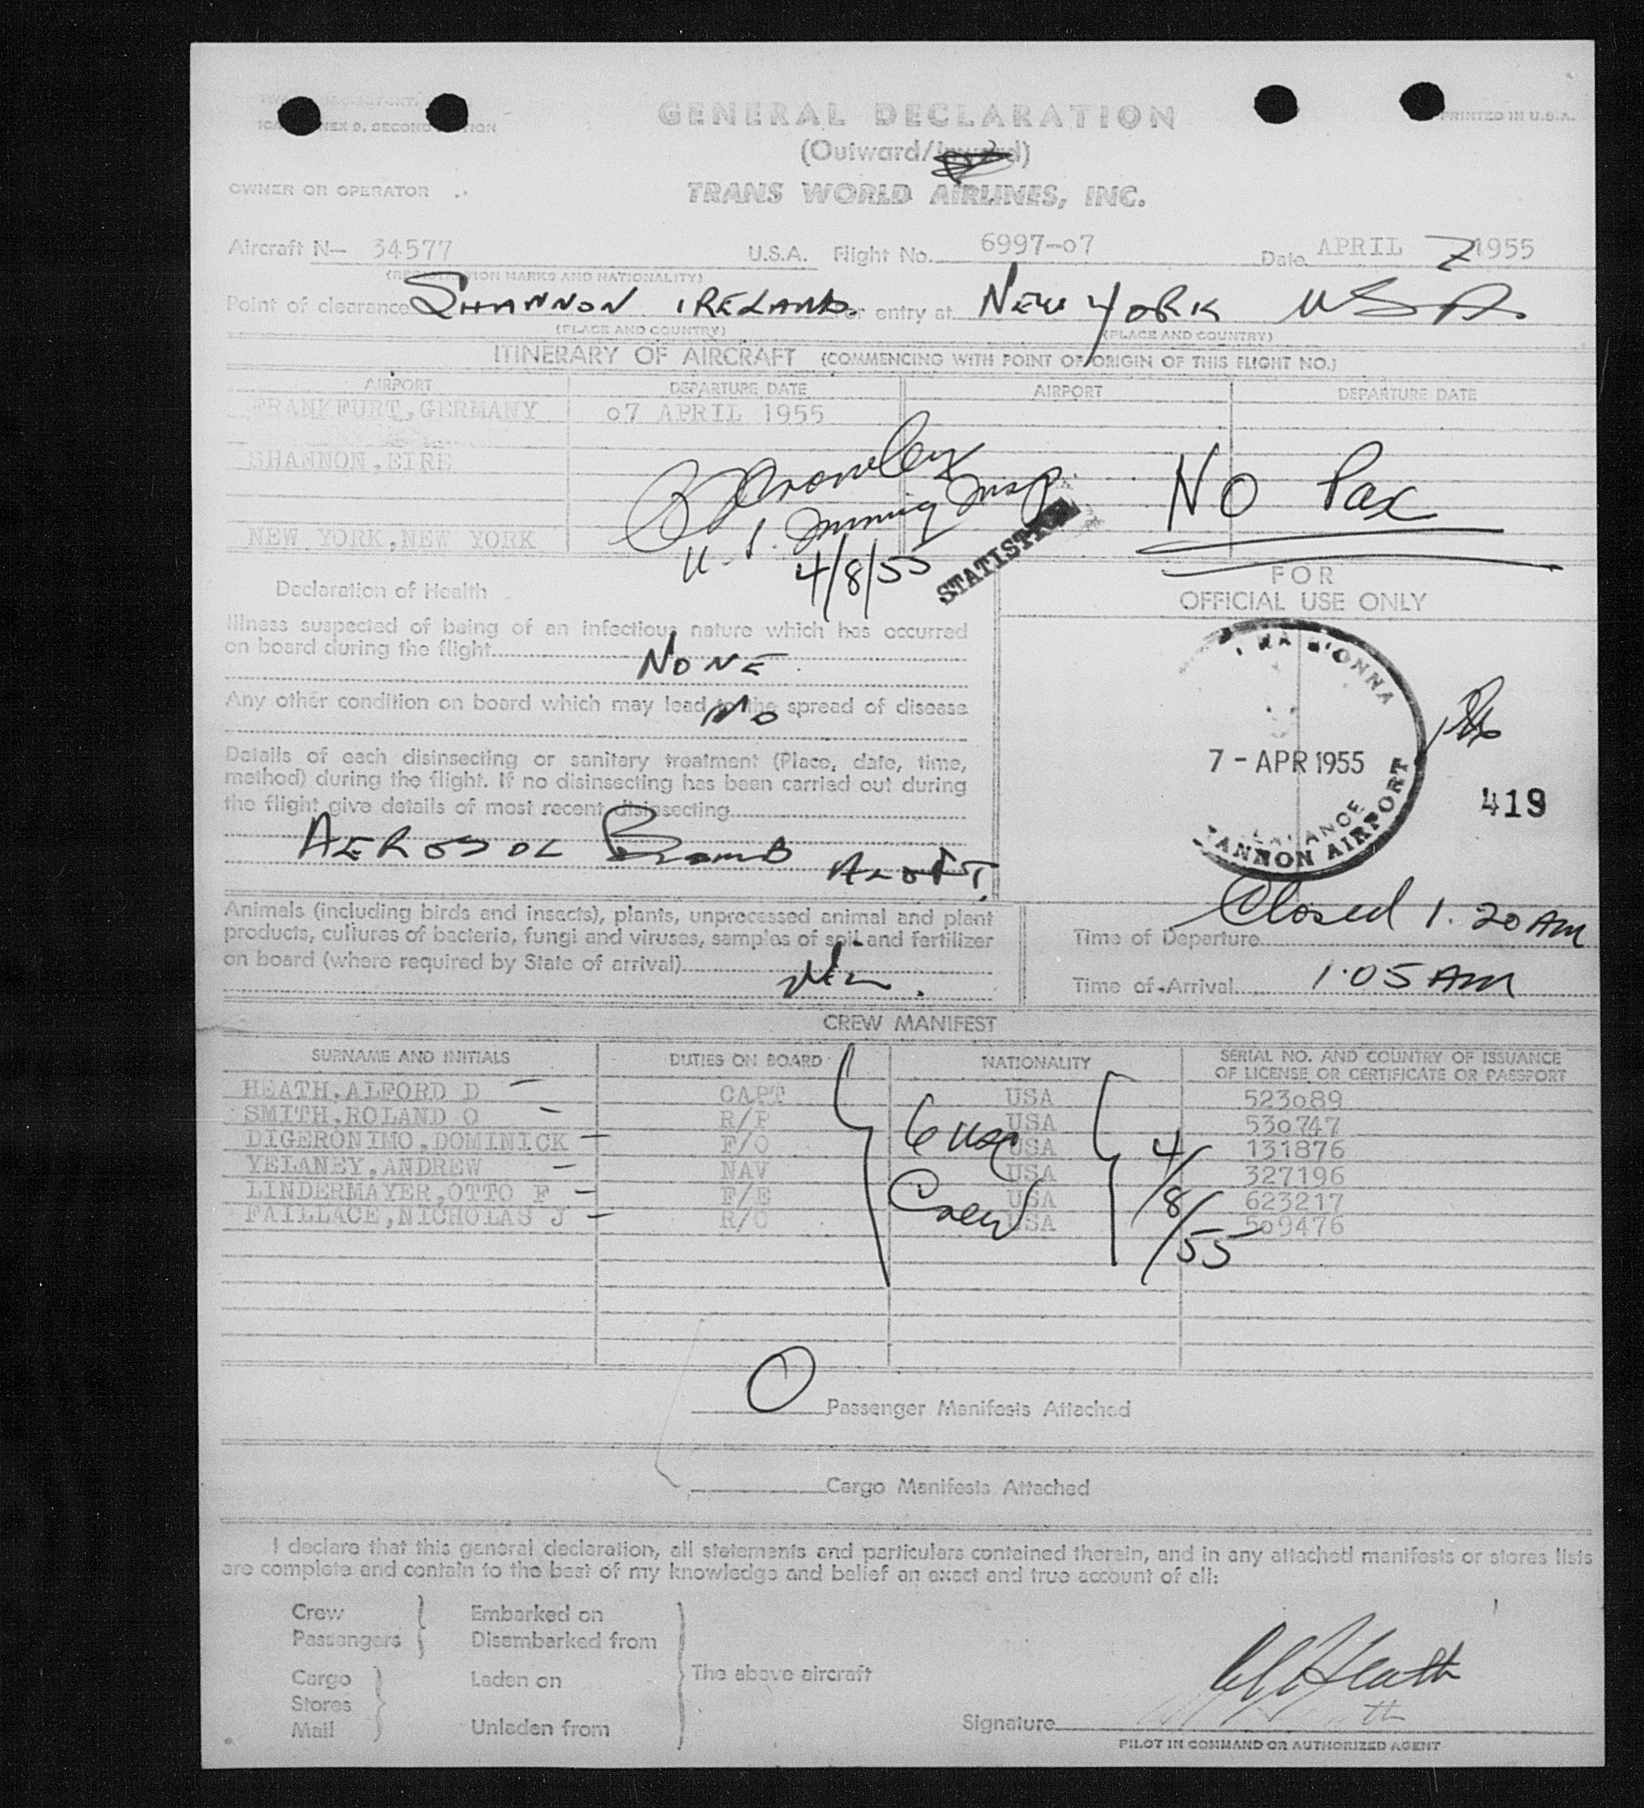 GENERAL DECLARATION
PRINTED IN U.S.A.
(Outward/Inward)
OWNER OR OPERATOR
TRANS WORLD AIRLINES, INC.
Aircraft N— 34577 U.S.A. Flight No. 6997-07 Date APRIL 7 1955
(REGISTRATION MARKS AND NATIONALITY)
Point of clearance SHANNON IRELAND. For entry at NEW YORK USA.
(PLACE AND COUNTRY) (PLACE AND COUNTRY)
ITINERARY OF AIRCRAFT (COMMENCING WITH POINT OF ORIGIN OF THIS FLIGHT NO.)
AIRPORT DEPARTURE DATE AIRPORT DEPARTURE DATE
FRANKFURT, GERMANY 07 APRIL 1955
SHANNON, EIRE
Crowley
U.S. Immig Insp
No Pax
NEW YORK, NEW YORK
4/8/55
STATISTICS
Declaration of Health
FOR
OFFICIAL USE ONLY
Illness suspected of being of an infectious nature which has occurred
on board during the flight
NONE
Any other condition on board which may lead to the spread of disease
NO
Details of each disinsecting or sanitary treatment (Place, date, time,
method) during the flight. If no disinsecting has been carried out during
the flight give details of most recent disinsecting
AEROSOL BOMB ALOFT.
7 - APR 1955
SHANNON AIRPORT
419
Animals (including birds and insects), plants, unprocessed animal and plant
products, cultures of bacteria, fungi and viruses, samples of soil and fertilizer
on board (where required by State of arrival)
Nil.
Time of Departure Closed 1.20 AM
Time of Arrival 1.05 AM
CREW MANIFEST
SURNAME AND INITIALS DUTIES ON BOARD NATIONALITY SERIAL NO. AND COUNTRY OF ISSUANCE
OF LICENSE OR CERTIFICATE OR PASSPORT
HEATH, ALFORD D CAPT USA 523089
SMITH, ROLAND O R/P USA 530747
DIGERONIMO, DOMINICK F/O USA 131876
YELANEY, ANDREW NAV USA 327196
LINDERMAYER, OTTO F F/E USA 623217
FAILLACE, NICHOLAS J R/O USA 509476
6 USA
Crew
4/8/55
0 Passenger Manifests Attached
Cargo Manifests Attached
I declare that this general declaration, all statements and particulars contained therein, and in any attached manifests or stores lists
are complete and contain to the best of my knowledge and belief an exact and true account of all:
Crew
Passengers
Embarked on
Disembarked from
Cargo
Stores
Mail
Laden on
Unladen from
The above aircraft
Signature
PILOT IN COMMAND OR AUTHORIZED AGENT